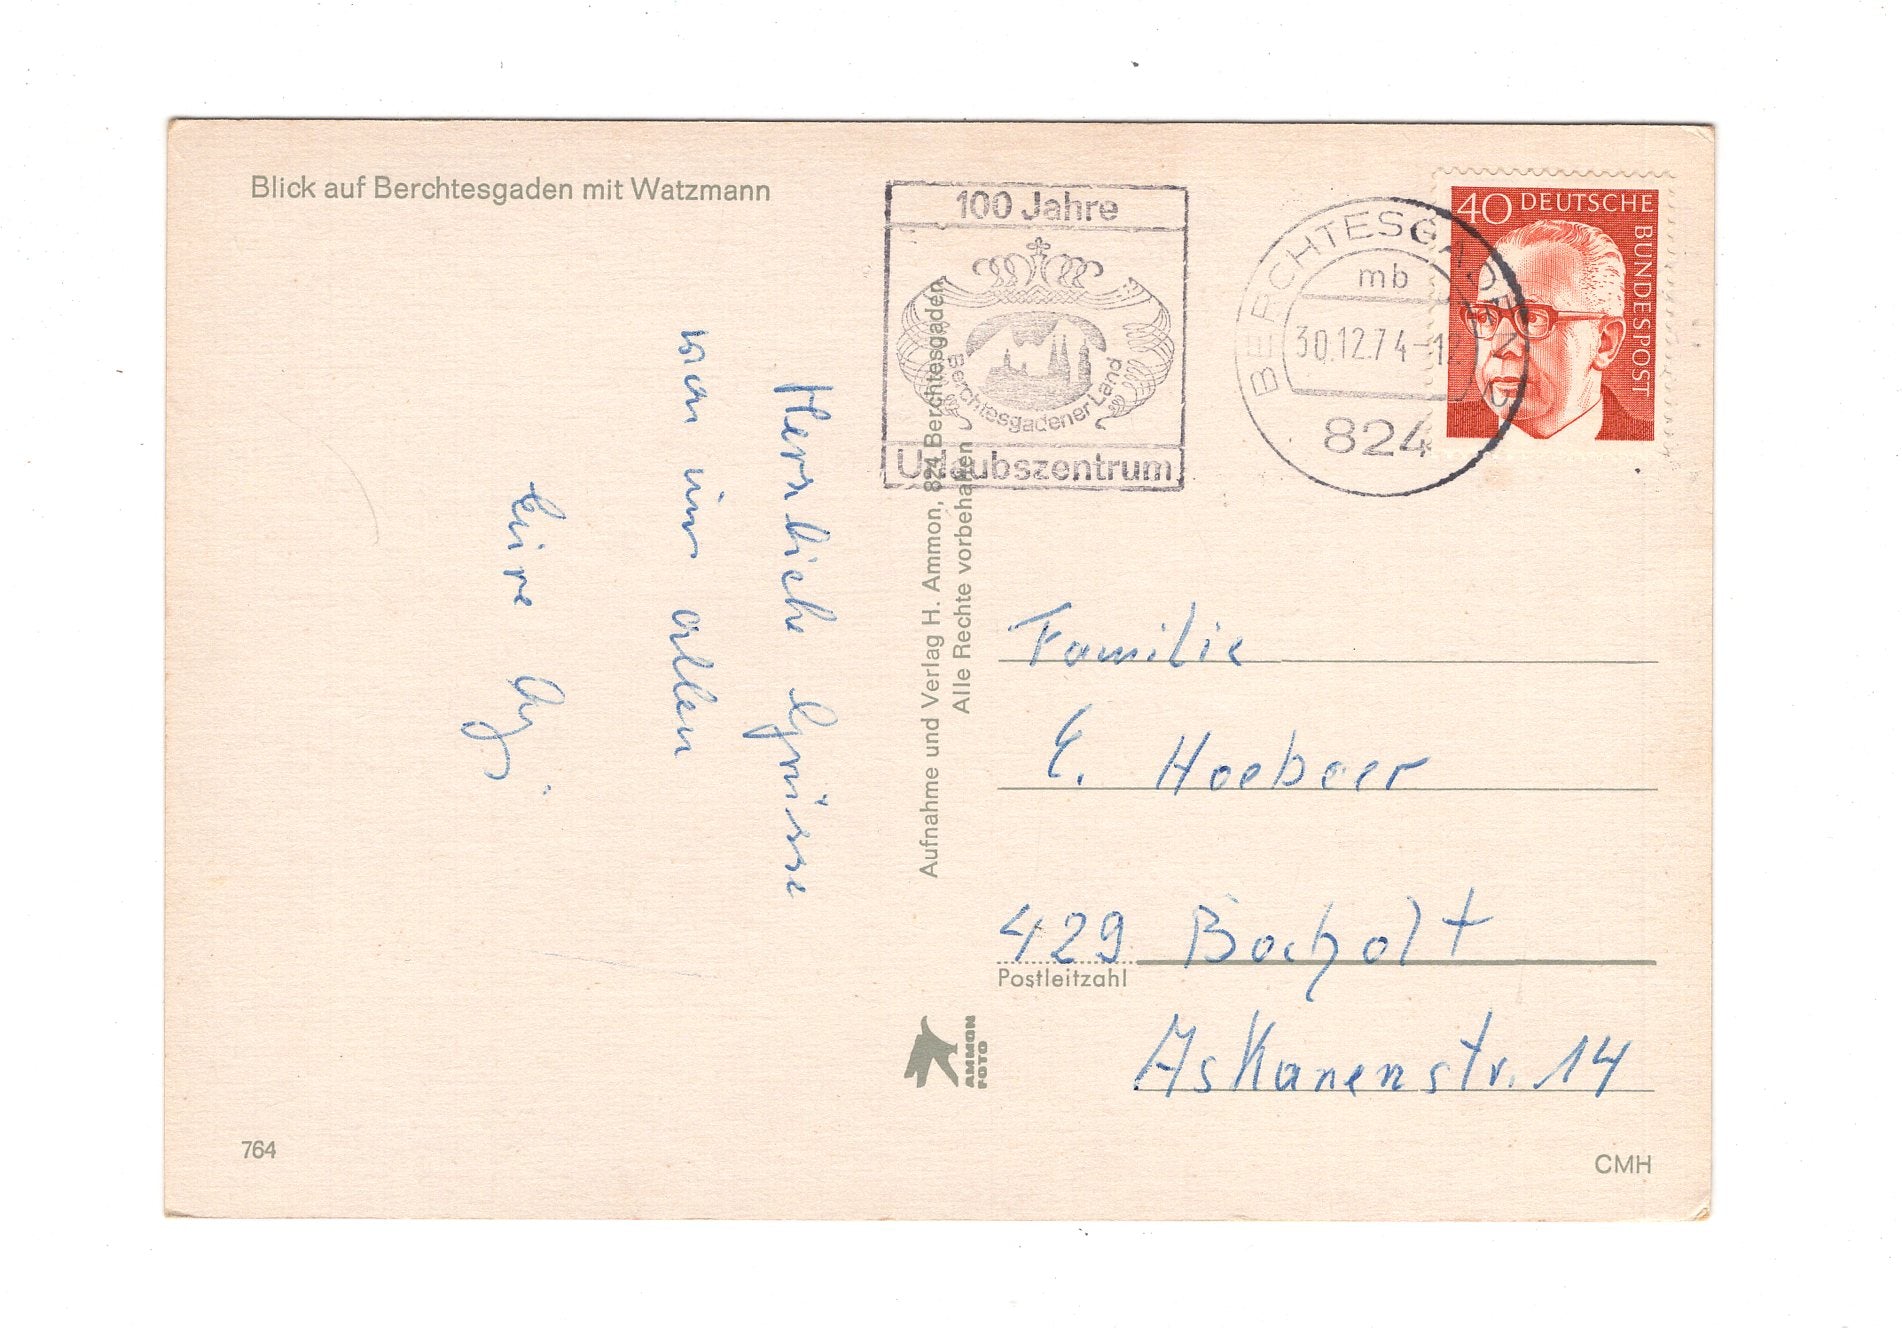 Blick auf Berchtesgaden mit Watzmann
100 Jahre
Berchtesgadener Land
Urlaubszentrum
BERCHTESGADEN
mb
30.12.74-12
824
40 DEUTSCHE BUNDESPOST
Herrliche Grüsse
von uns allen
Aufnahme und Verlag H. Ammon, 824 Berchtesgaden
Alle Rechte vorbehalten
Familie
E. Hoebeer
429 Bocholt
Postleitzahl
Askanenstr. 14
AMMON
FOTO
764
CMH